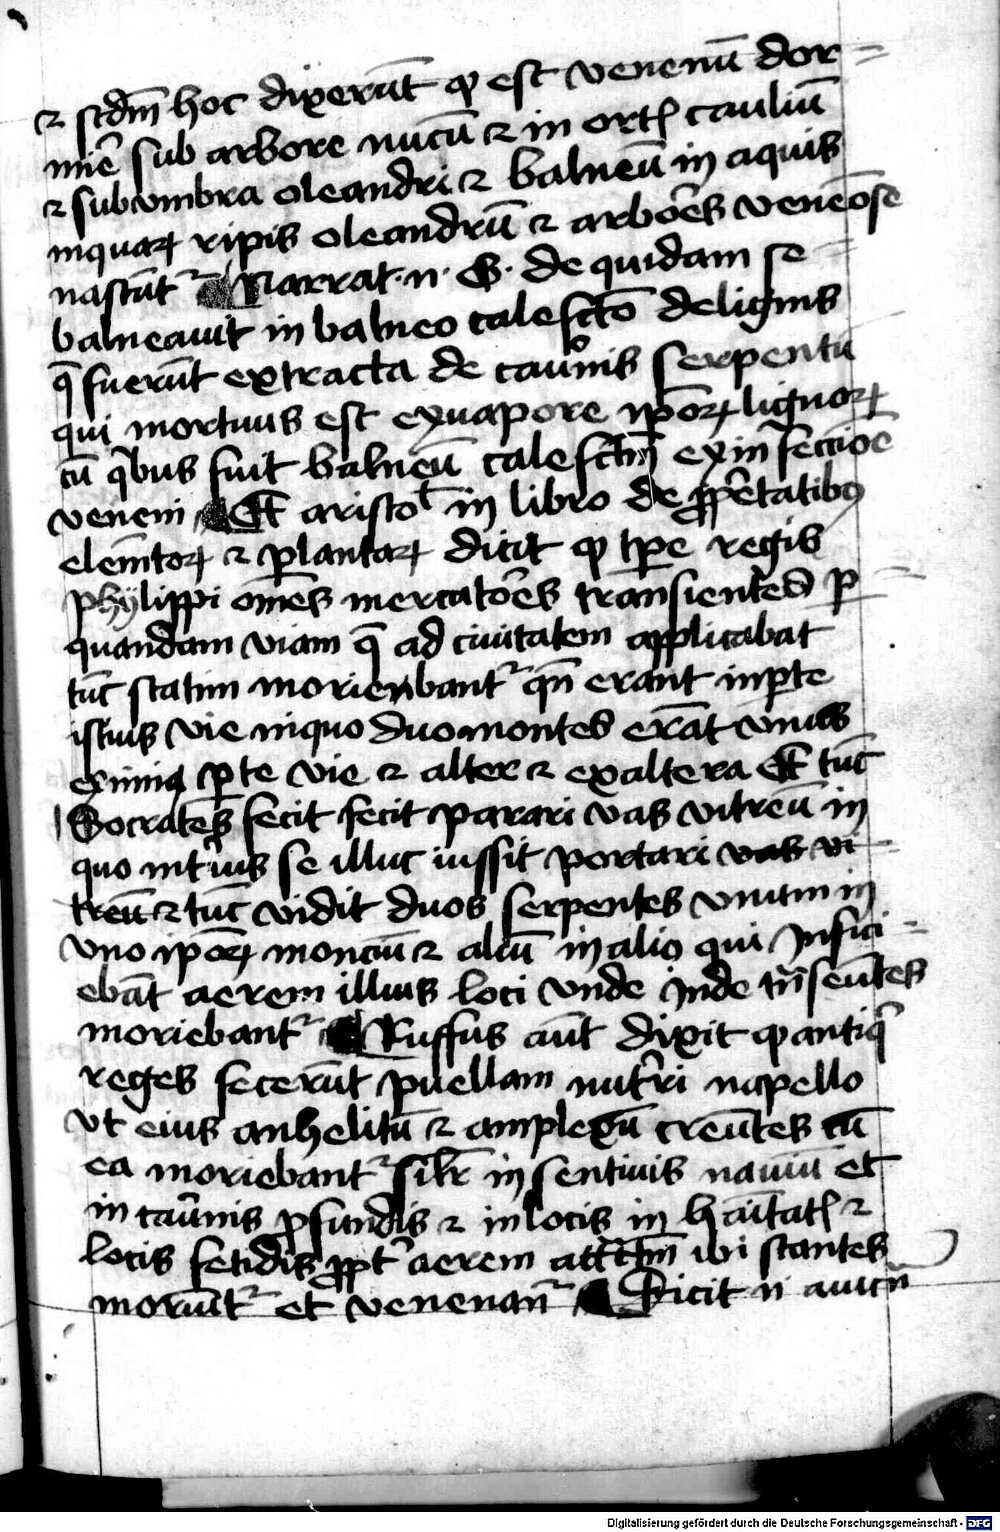 ⁊ scdm̄ hoc dixerūt ꝙ est venenū dor
mie᷑ sub arbore nucū ⁊ in ortꝭ cauliū
⁊ sub vmbra oleandri ⁊ balneū in aquis
in quaꝝ ripis oleandrū ⁊ arbo᷑es venēose
nascūt᷑ Narrat .n. G. de quidam se
balneauit in balneo calefcto de lignis
q̄ fuerūt extracta de cauͦnis serpentū
qui mortuus est ex vapore ip̄oꝝ lignoꝝ
cū qͥbus fuit balneū calefctm̄ ex infectiōe
veneni Et aristoͭ in libro de ꝓp͛etatibꝰ
elem̄toꝝ ⁊ plantaꝝ dicit ꝙ tp̄e regis
phylippi om̄es mercato᷑es transientes ꝑ
quandam viam q̄ ad ciuitatem applicabāt
tūc statim morienbant᷑ qn̄ erant in ꝑte
istius vie in quo duo montes erāt vnus
ex una ꝑte vie ⁊ alter ⁊ ex altera Et tūc
Socrates fecit fecit parari vas vitreū in
quo int͛ius se illuc iussit portari vas vi
treū ⁊ tūc vidit duos serpentes vnum in
vno ip̄oꝝ monciū ⁊ aliū in alio qui Infici
ebāt aerem illius loci vnde Inde tn̄seūtes
moriebant᷑ Ruffus aūt dixit ꝙ antiqͥ
reges fecerūt puellam nut͛ri napello
vt eius anhelitū ⁊ amplexū creūtes cū
ea moriebant᷑ silr̄ in sentinis nauiū et
in cau͛nis ꝓfundis ⁊ in locis in haītatꝭ ⁊
locis fetidis ꝓpt͛ aerem ibi stantes
moriūt᷑ et venenan᷑ Dicit n̄ auicn̄